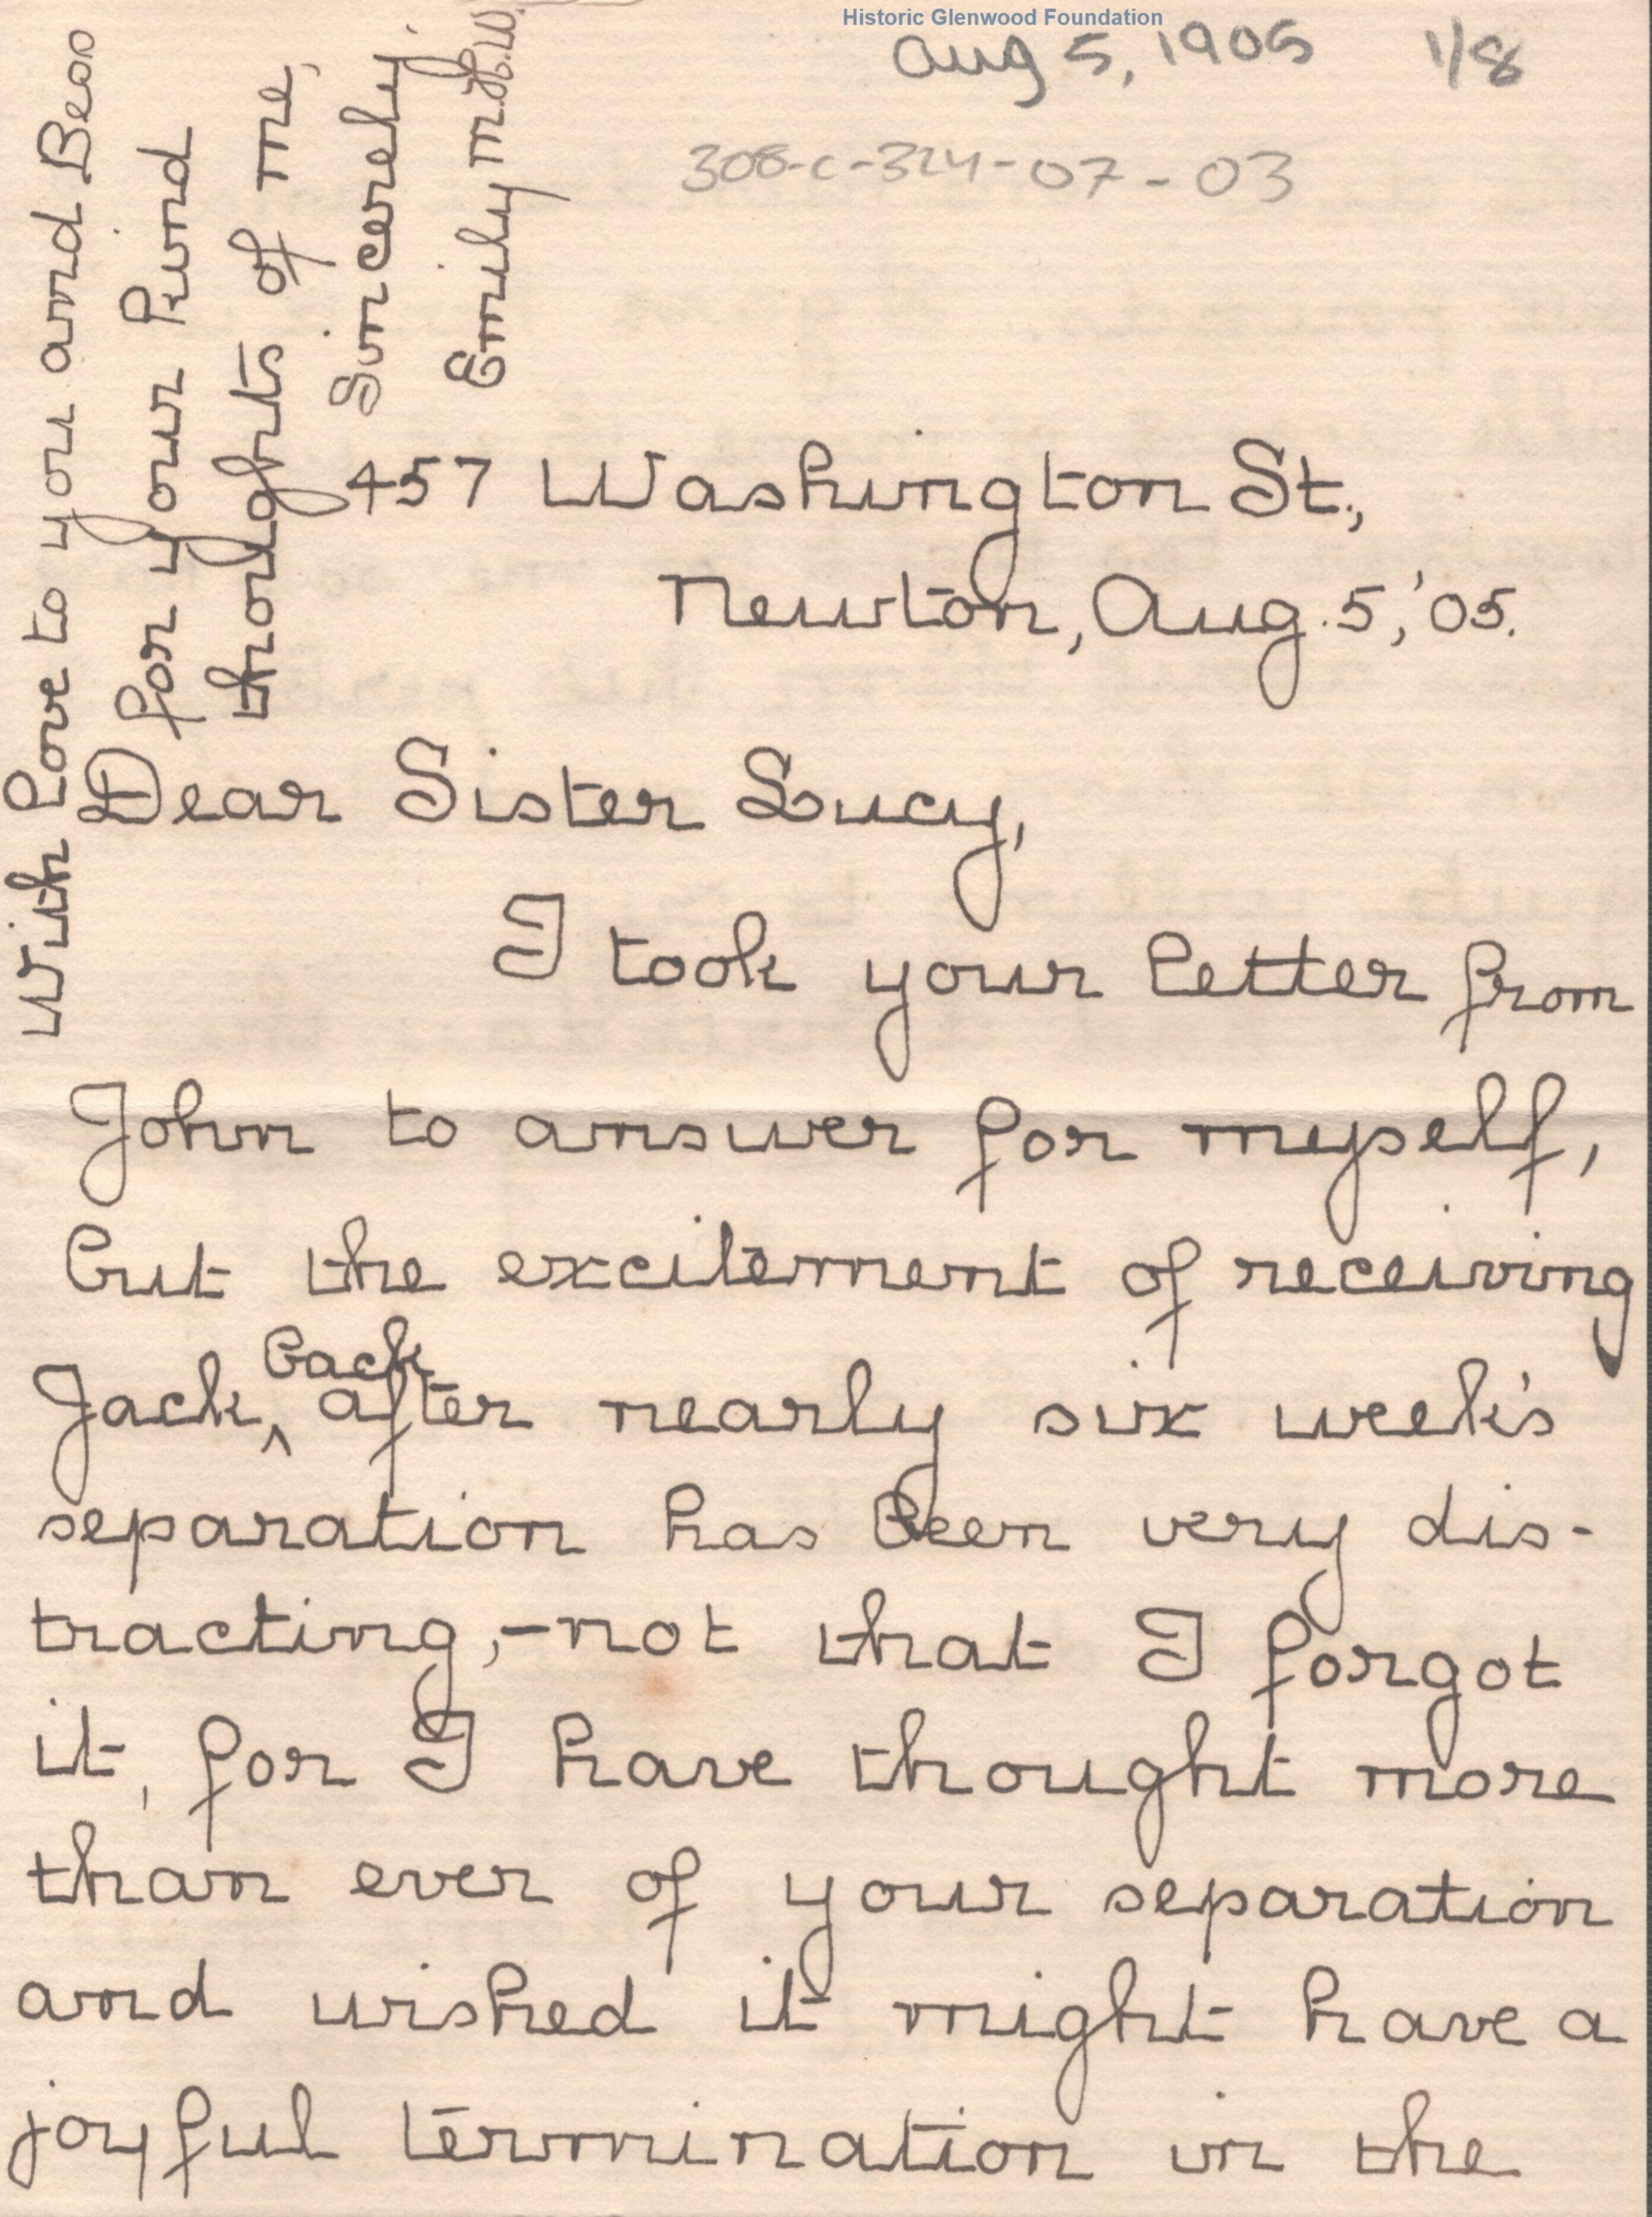 Historic Glenwood Foundation
Aug 5, 1905 1/8
308-C-324-07-03
457 Washington St.,
Newton, Aug. 5, '05.
Dear Sister Lucy,
I took your letter from
John to answer for myself,
but the excitement of receiving
Jack, back after nearly six week's
separation has been very dis-
tracting,-not that I forgot
it, for I have thought more
than ever of your separation
and wished it might have a
joyful termination in the
With love to you and
for your kind
thoughts of me,
Sincerely.
Emily